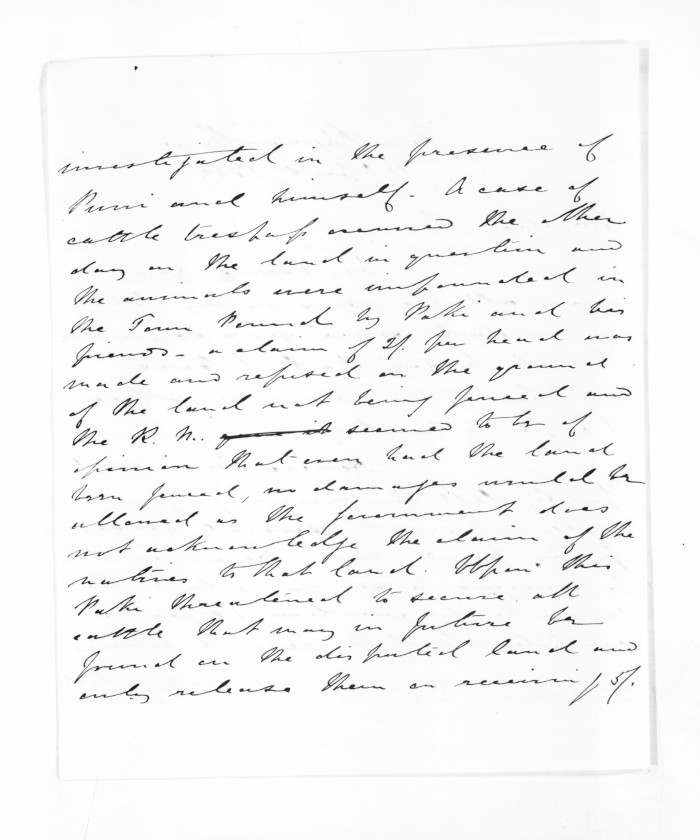 investigated in the presence of
Puni and himself. A case of
cattle trespass occurred the other
day on the land in question and
the animals were impounded in
the Town Pound by Paki and his
friends – a claim of 2/. per head was
made and refused on the ground
of the land not being fenced and
the R. M. seemed to be of
opinion that even had the land
been fenced, no damages would be
allowed as the Government does
not acknowledge the claim of the
natives to that land. Upon this
Paki threatened to secure all
cattle that may in future be
found on the disputed land and
only release them on receiving 5/.